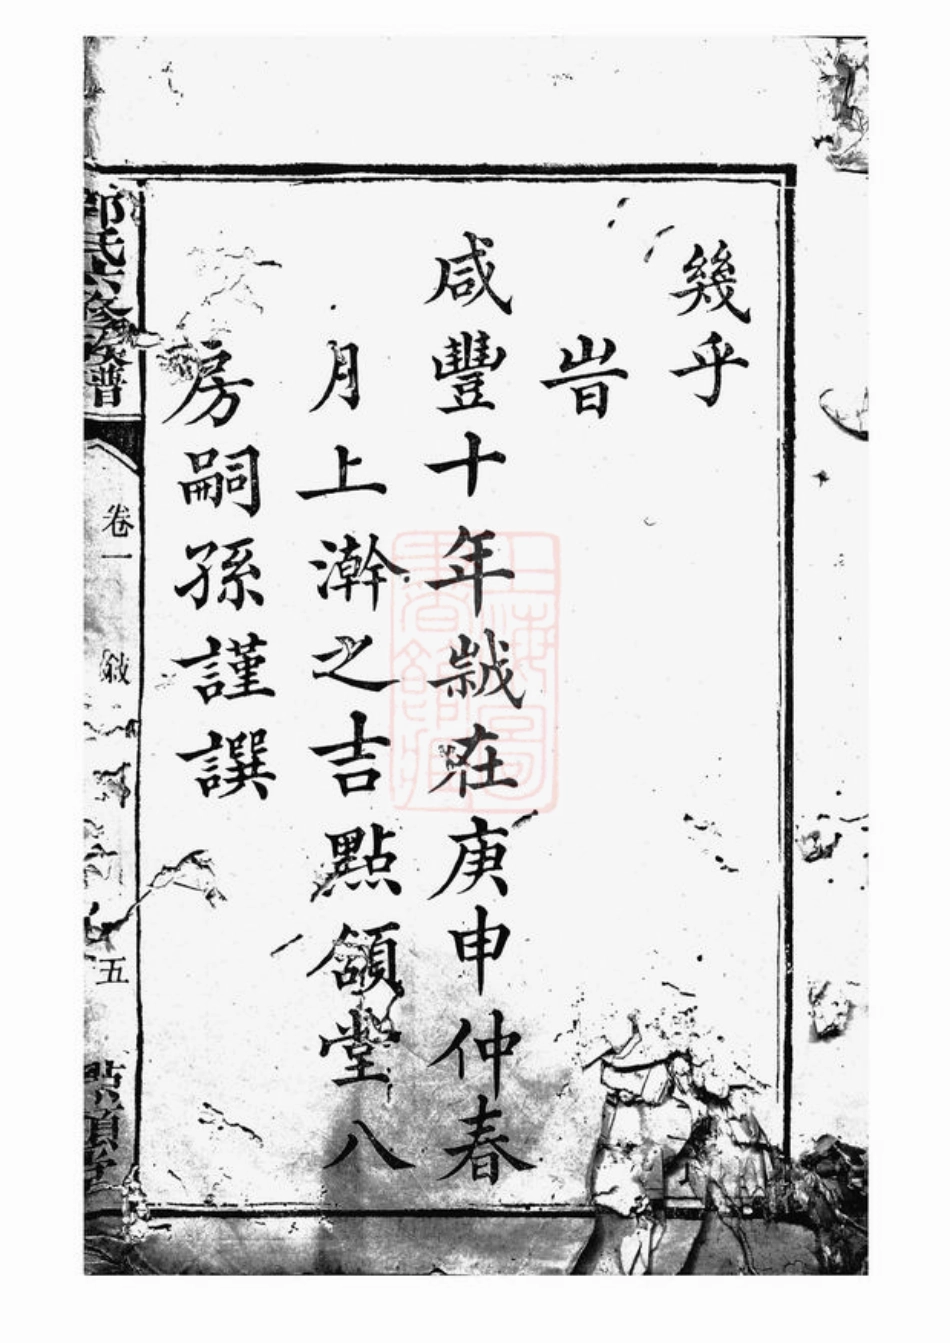 幾乎
旹
咸豐十年歲在庚申仲春
月上澣之吉點頷堂八
房嗣孫謹譔
氏六修族譜
卷一
敘
五